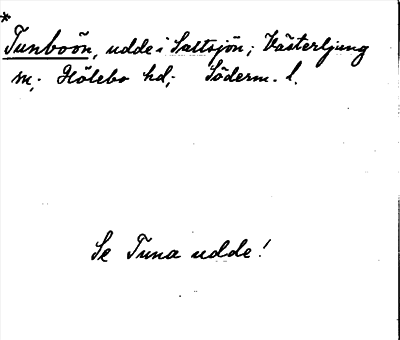 *
Tunboön, udde i Saltsjön; Västerljung
m; Hölebo hd; Söderm. l.
Se Tuna udde!